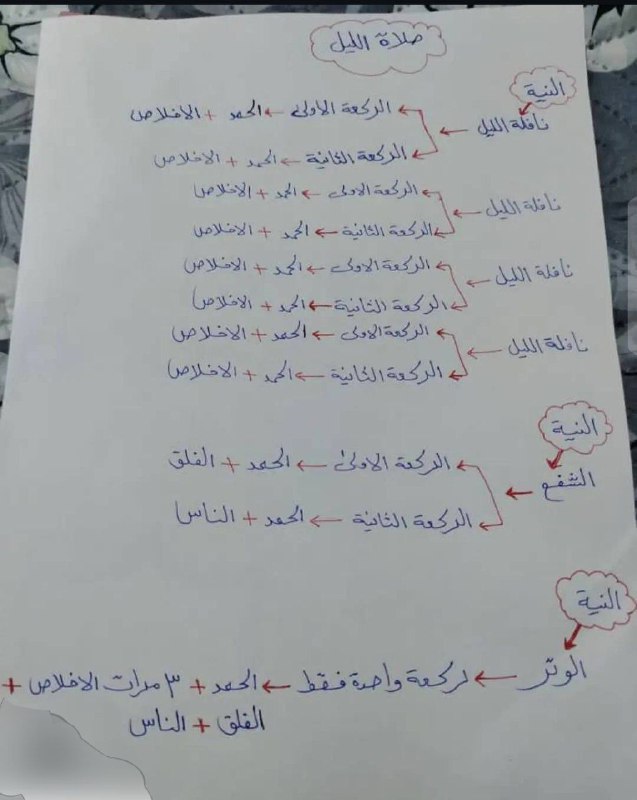 صلاة الليل
النية
نافلة الليل ← الركعة الاولى ← الحمد + الاخلاص
الركعة الثانية ← الحمد + الاخلاص
نافلة الليل ← الركعة الاولى ← الحمد + الاخلاص
الركعة الثانية ← الحمد + الاخلاص
نافلة الليل ← الركعة الاولى ← الحمد + الاخلاص
الركعة الثانية ← الحمد + الاخلاص
نافلة الليل ← الركعة الاولى ← الحمد + الاخلاص
الركعة الثانية ← الحمد + الاخلاص
النية
الشفع ← الركعة الاولى ← الحمد + الفلق
الركعة الثانية ← الحمد + الناس
النية
الوتر ← ركعة واحدة فقط ← الحمد + ٣ مرات الاخلاص +
الفلق + الناس